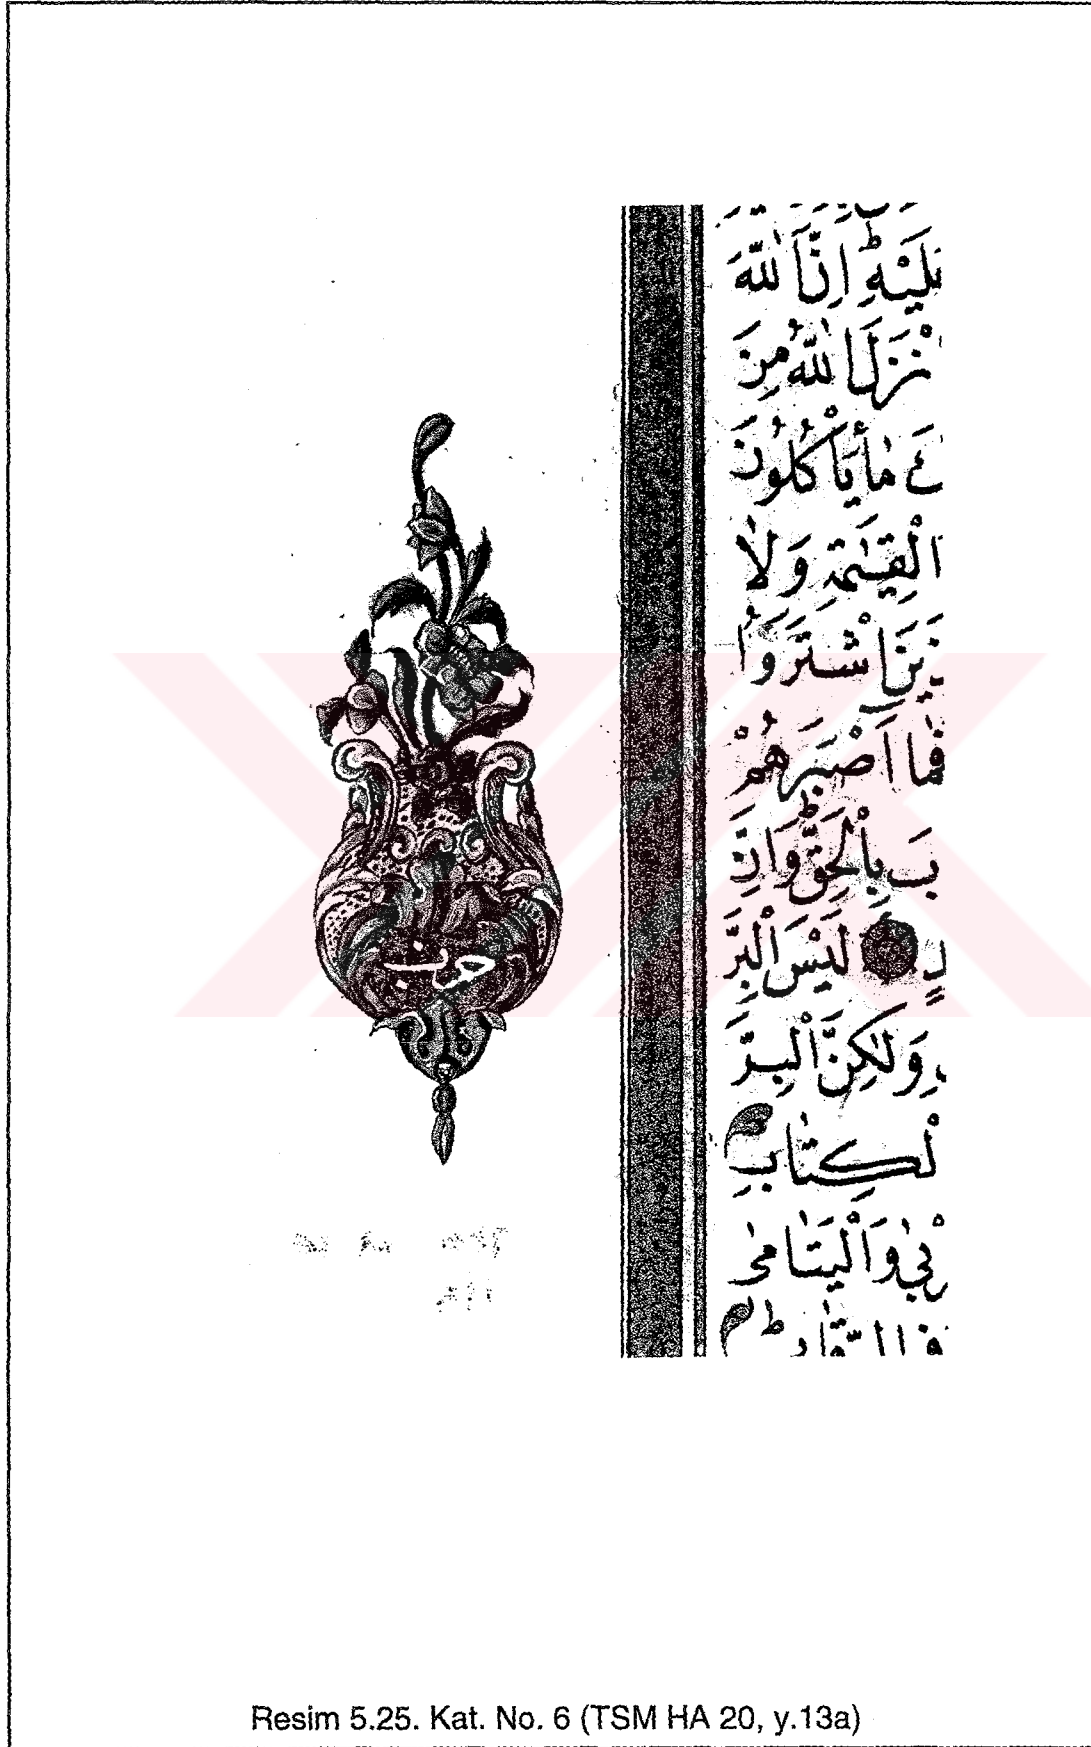 عَلَيْهِ ۜ اِنَّ اللّٰهَ
نْزَلَ اللّٰهُ مِنَ
مَا يَأْكُلُونَ
الْقِيٰمَةِ وَلَا
ينَ اشْتَرَوُا
فَمَا اَصْبَرَهُمْ
بَ بِالْحَقِّ ۜ وَاِنَّ
دٍ لَيْسَ الْبِرَّ
وَلٰكِنَّ الْبِرَّ
لْكِتَابِ
رْبٰى وَالْيَتَامٰى
حزب
Resim 5.25. Kat. No. 6 (TSM HA 20, y.13a)